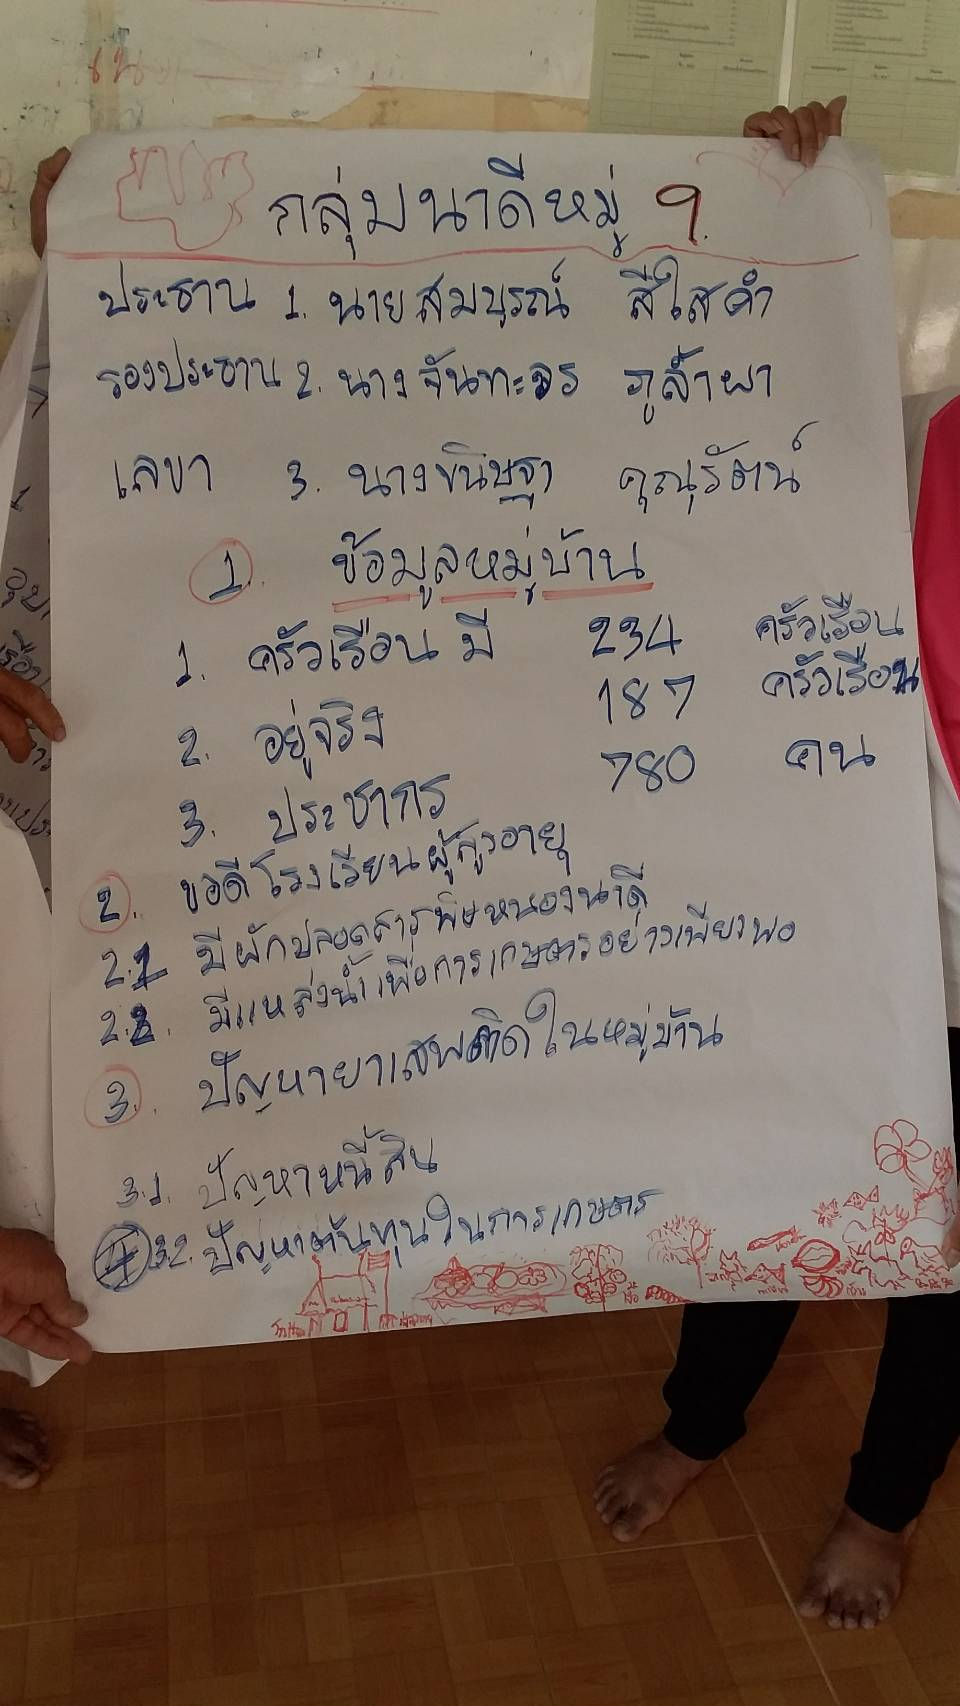 กลุ่มนาดีหมู่ 9.
ประธาน 1. นายสมบูรณ์ สีใสคำ
รองประธาน 2. นางจันทะจร ภูล้ำผา
เลขา 3. นางขนิษฐา คุณุรัตน์
1. ข้อมูลหมู่บ้าน
1. ครัวเรือน มี 234 ครัวเรือน
2. อยู่จริง 187 ครัวเรือน
3. ประชากร 780 คน
2. ขอดี โรงเรียนผู้สูงอายุ
2.1 มีผักปลอดสารพิษหนองนาดี
2.2. มีแหล่งน้ำเพื่อการเกษตรอย่างเพียงพอ
3. ปัญหายาเสพติดในหมู่บ้าน
3.1. ปัญหาหนี้สิน
4 3.2. ปัญหาต้นทุนในการเกษตร